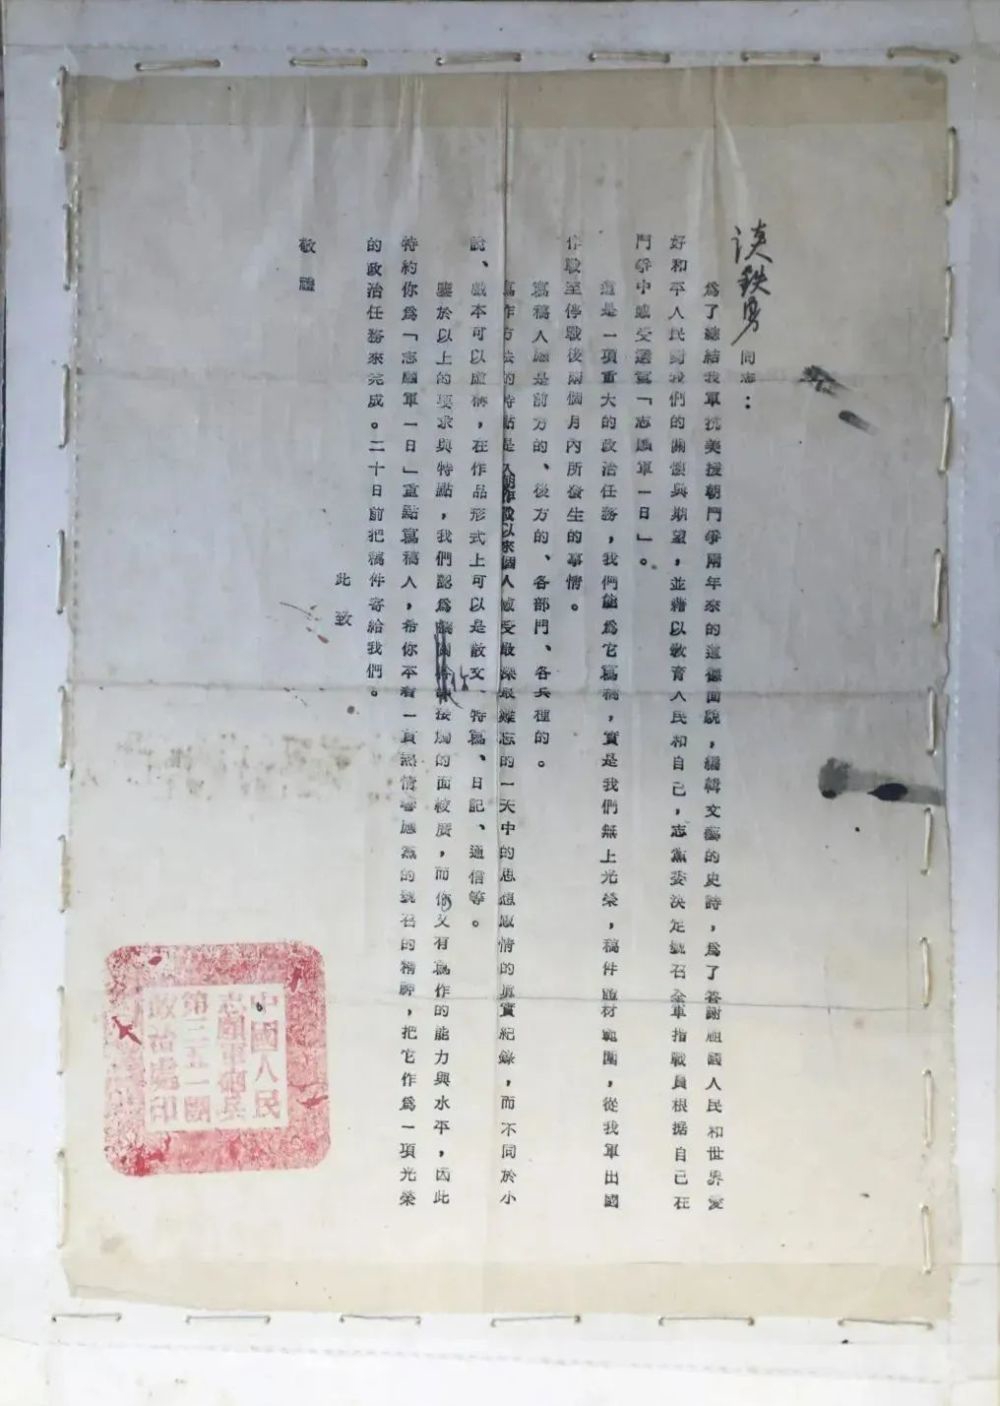 谈鉄男同志：
爲了總結我軍抗美援朝鬥爭兩年來的道德面貌，編輯文藝的史詩，爲了答謝祖國人民和世界愛
好和平人民對我們的關懷與期望，並藉以敎育人民和自己，志黨委決定號召全軍指戰員根据自己在
鬥爭中感受選寫「志願軍一日」。
這是一項重大的政治任務，我們能爲它寫稿，實是我們無上光榮，稿件題材範圍，從我軍出國
作戰至停戰後兩個月內所發生的事情。
寫稿人應是前方的、後方的、各部門、各兵種的。
寫作方法的特點是入朝作戰以來個人感受最深最難忘的一天中的思想感情的眞實紀錄，而不同於小
說、戲本可以虛構，在作品形式上可以是散文、特寫、日記、通信等。
鑒於以上的要求與特點，我們認爲你接觸的面較廣，而你又有寫作的能力與水平，因此
特約你爲「志願軍一日」重點寫稿人，希你本着一貫熱情響應黨的號召的精神，把它作爲一項光榮
的政治任務來完成。二十日前把稿件寄給我們。
此致
敬禮
中國人民
志願軍砲兵
第三五一團
政治處印